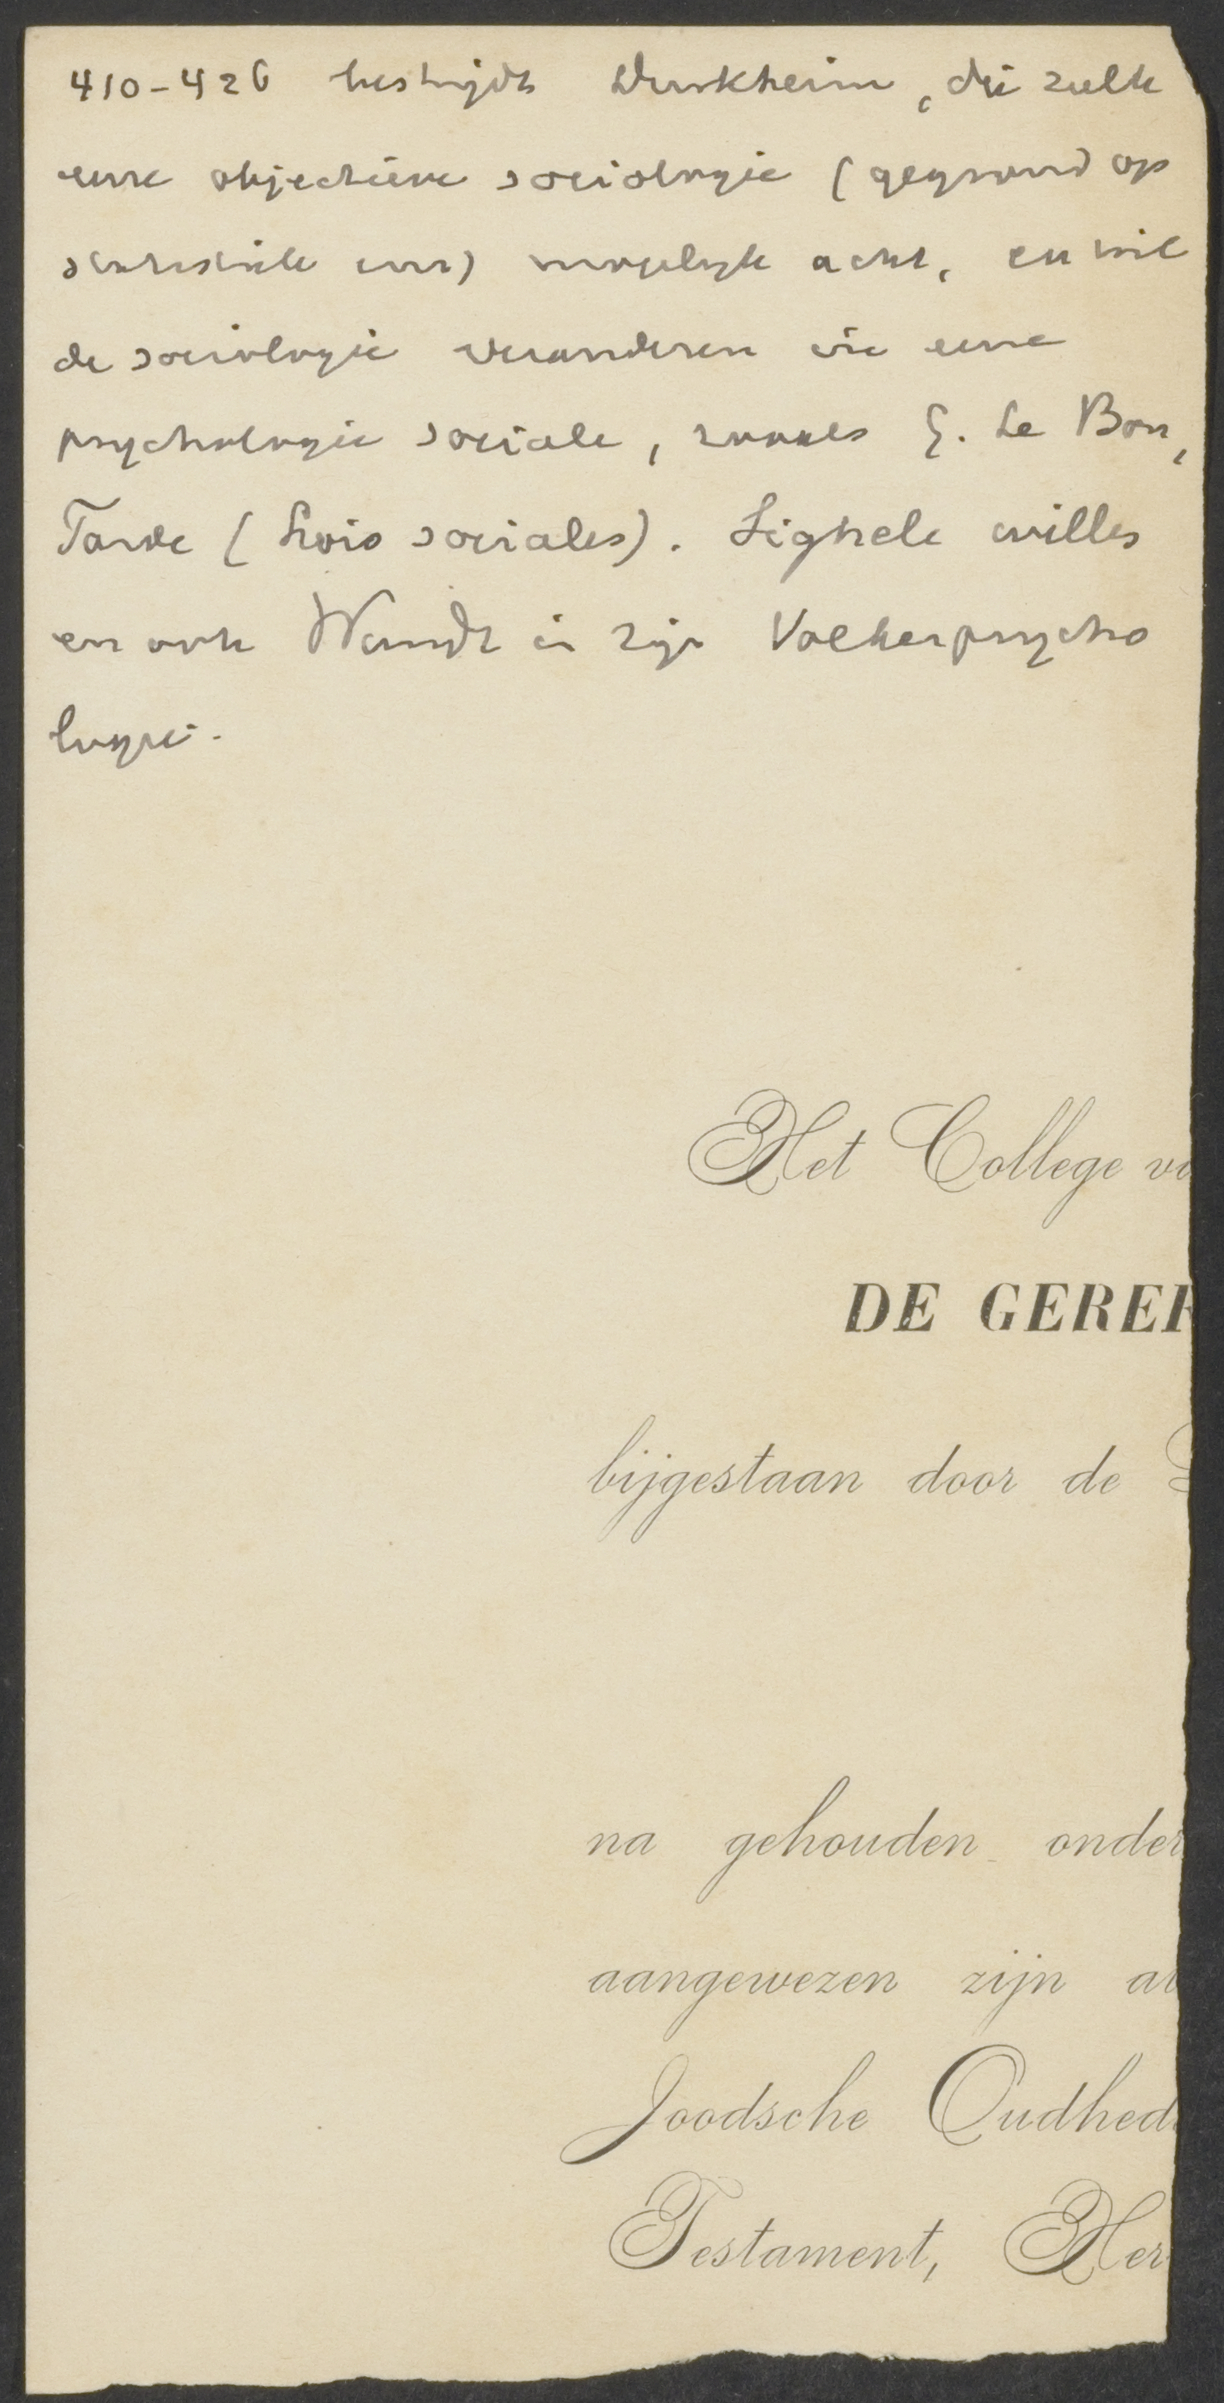 410-426 bestrijdt Durkheim, die zulk
eene objectieve sociologie (gegrond op
statistiek enz) mogelijk acht, en wil
de sociologie veranderen in eene
psychologie sociale, zooals G. Le Bon,
Tarde (Lois sociales). Sighele willen
en ook Wundt in zijn Voelkerpsycho
logie.
Het College va
DE GEREF
bijgestaan door de
na gehouden onder
aangewezen zijn al
Joodsche Oudhed
Testament, Her